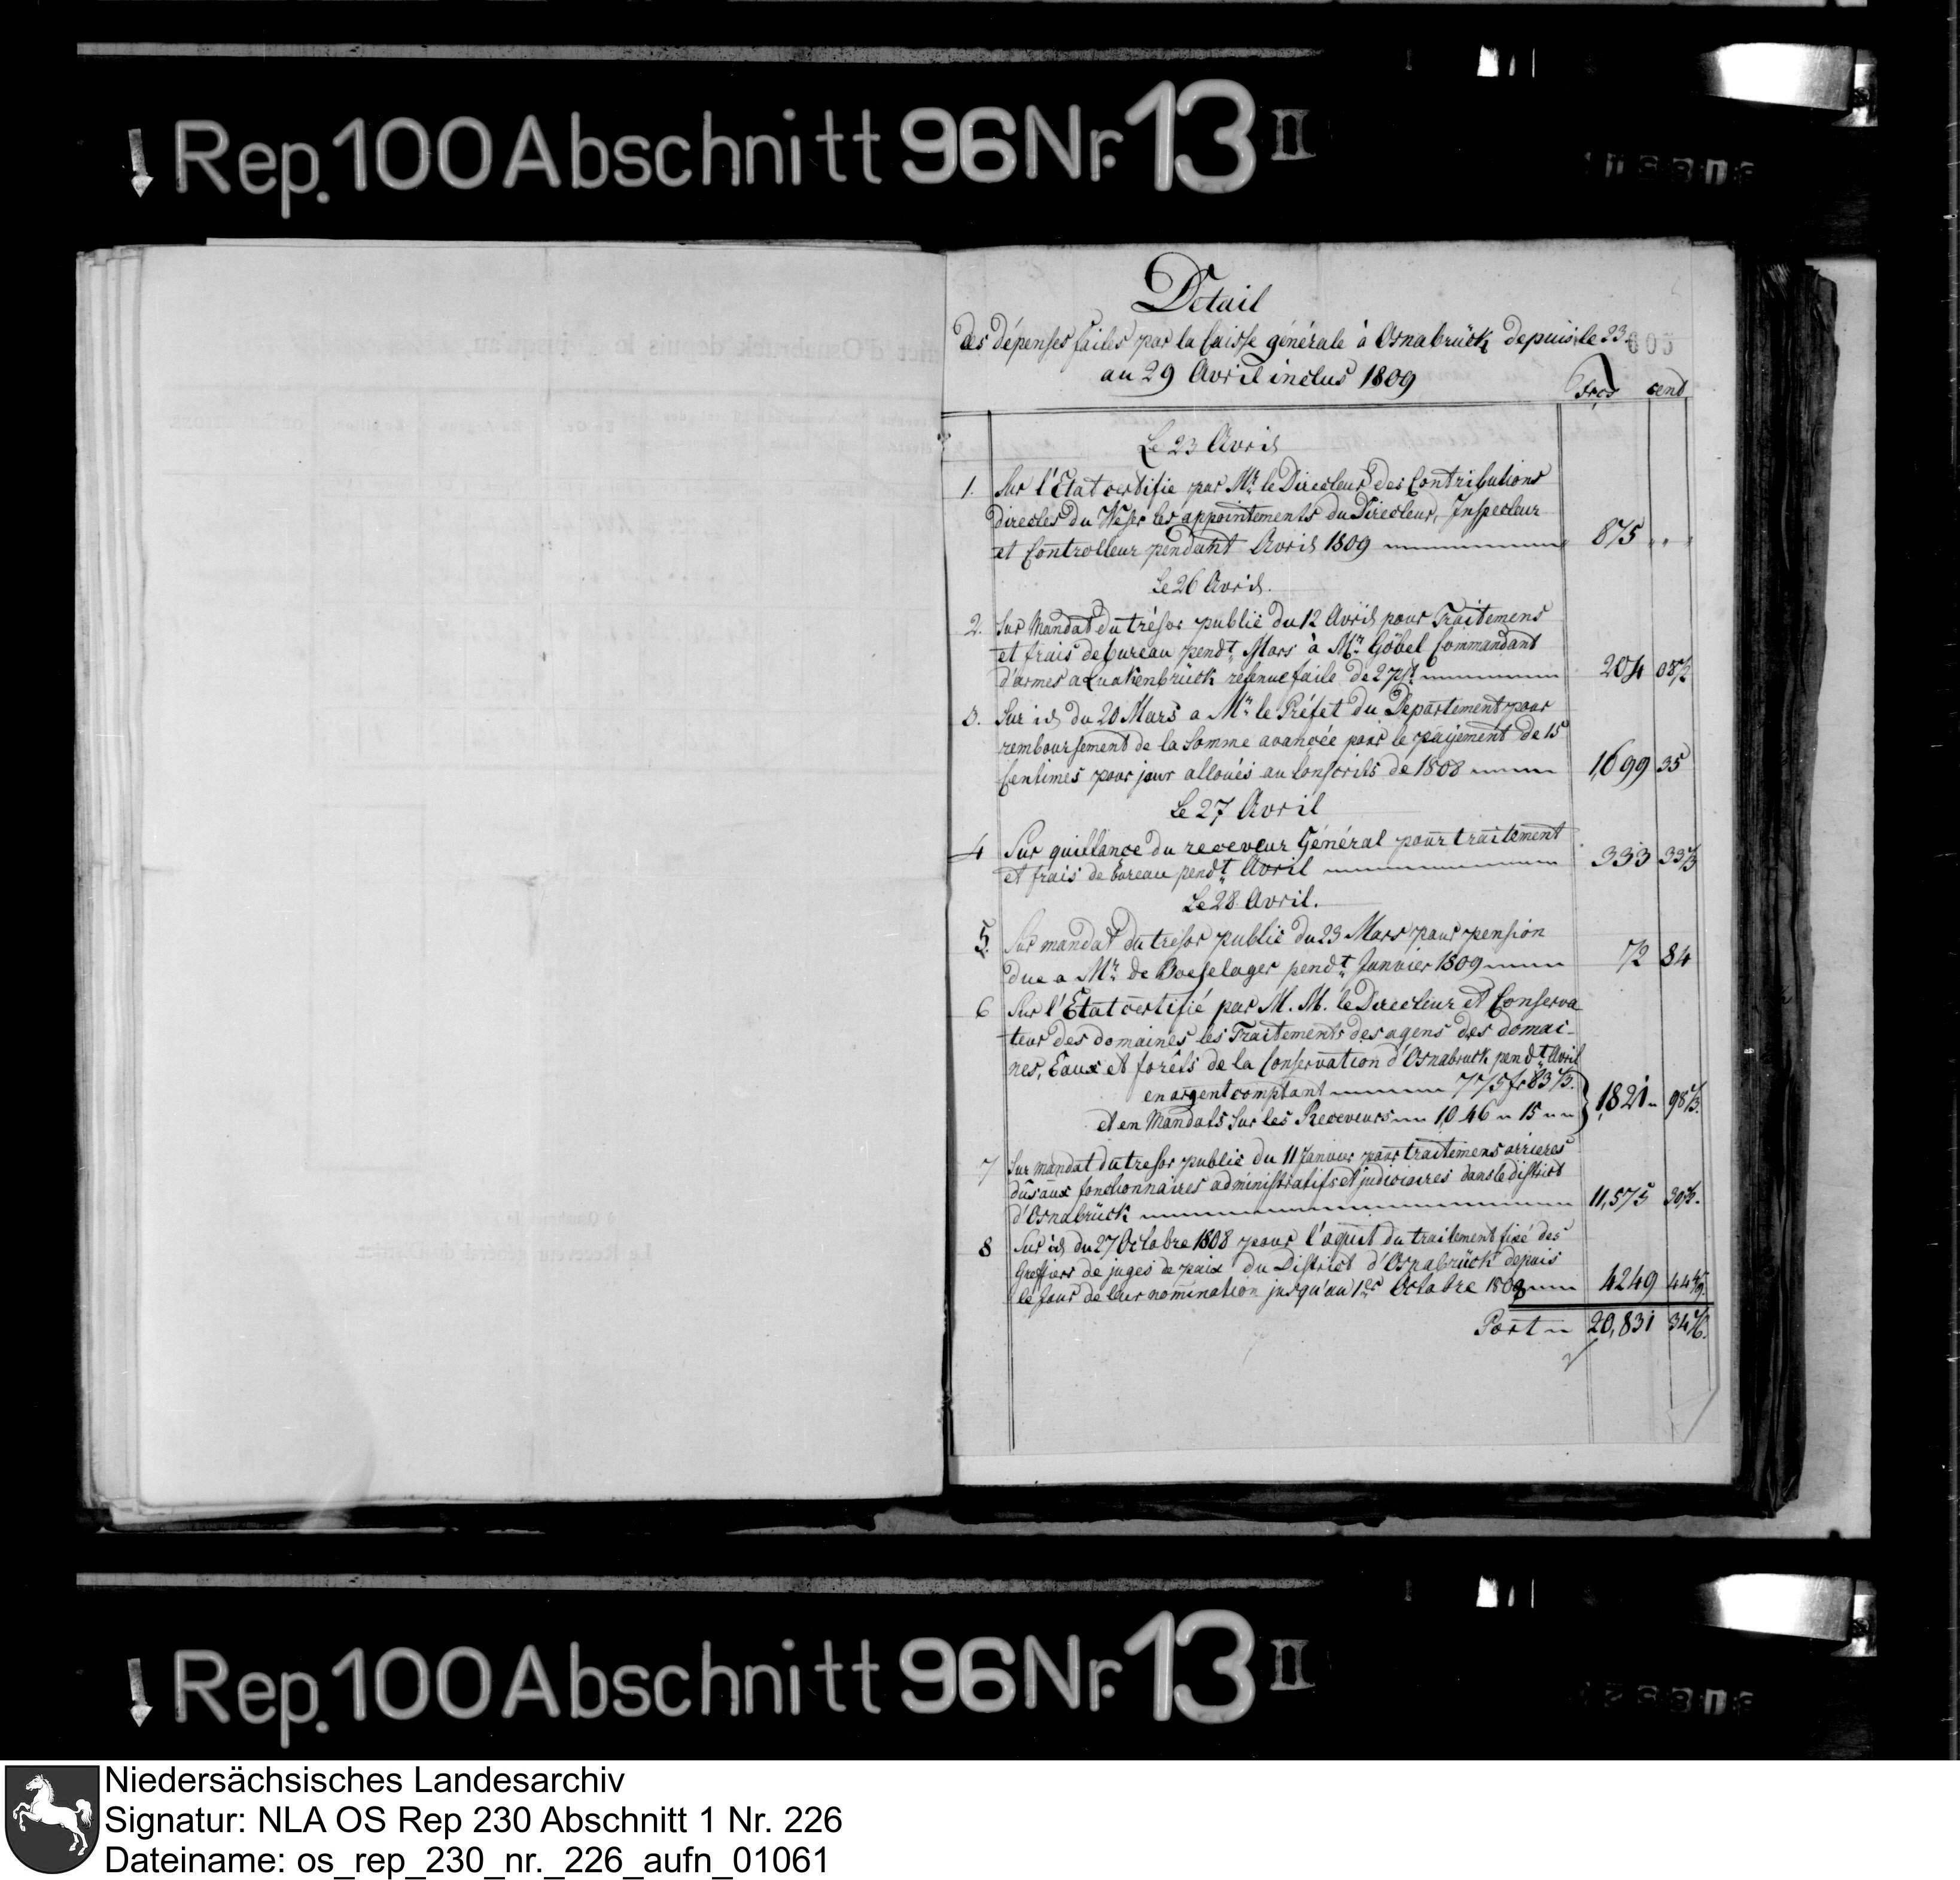 Rep. 100 Abschnitt 96 Nr. 13 II
Detail
des dépenses faites par la Caisse générale à Osnabrück depuis le 23
005
au 29 Avril inclus 1809
frcs cent
Le 23 Avril
1. Sur l'Etat certifie par Mr. le Directeur des Contributions
directes du Weser les appointements du Directeur, Inspecteur
et Controlleur pendant Avril 1809 875 " "
Le 26 Avril.
2. Sur Mandat du trésor public du 12 Avril pour Traitemens
et frais de bureau pendt. Mars à Mr. Göbel Commandant
d'armes a Quakenbrück retenue faite de 2 pCt. 204 08 1/2
3. Sur id du 20 Mars a Mr. le Préfet du Departement pour
remboursement de la Somme avancée pour le payement de 15
Centimes pour jour alloués au Conscrits de 1808 1,699 35
Le 27 Avril
4 Sur quittance du receveur Général pour traitement
et frais de bureau pendt. Avril 333 33 1/3
Le 28 Avril.
5. Sur mandat du trésor public du 23 Mars pour pension
due a Mr. de Boeselager pendt. Janvier 1809 72 84
6 Sur l'Etat certifié par M. M. le Directeur et Conserva
teur des domaines les Traitements des agens des domai-
nes, Eaux et forêts de la Conservation d'Osnabruck pendt. Avril
en argent comptant 775 fr 83 1/3.
et en Mandats Sur les Receveurs 1,046 " 15 " " } 1,821 " 98 1/3.
7 Sur mandat du tresor public du 11 Janvier pour traitemens arrieres
dûs aux fonctionnaires administratifs et judiciaires dans le district
d'Osnabrück 11,575
8 Sur id du 27 Octobre 1808 pour l'aquit du traitement fixé des
Greffiers de juges de paix du District d'Osnabrück depuis
le jour de leur nomination jusqu'au 1er Octobre 4249
Port 20,831
Rep. 100 Abschnitt 96 Nr. 13 II
Niedersächsisches Landesarchiv
Signatur: NLA OS Rep 230 Abschnitt 1 Nr. 226
Dateiname: os_rep_230_nr._226_aufn_01061